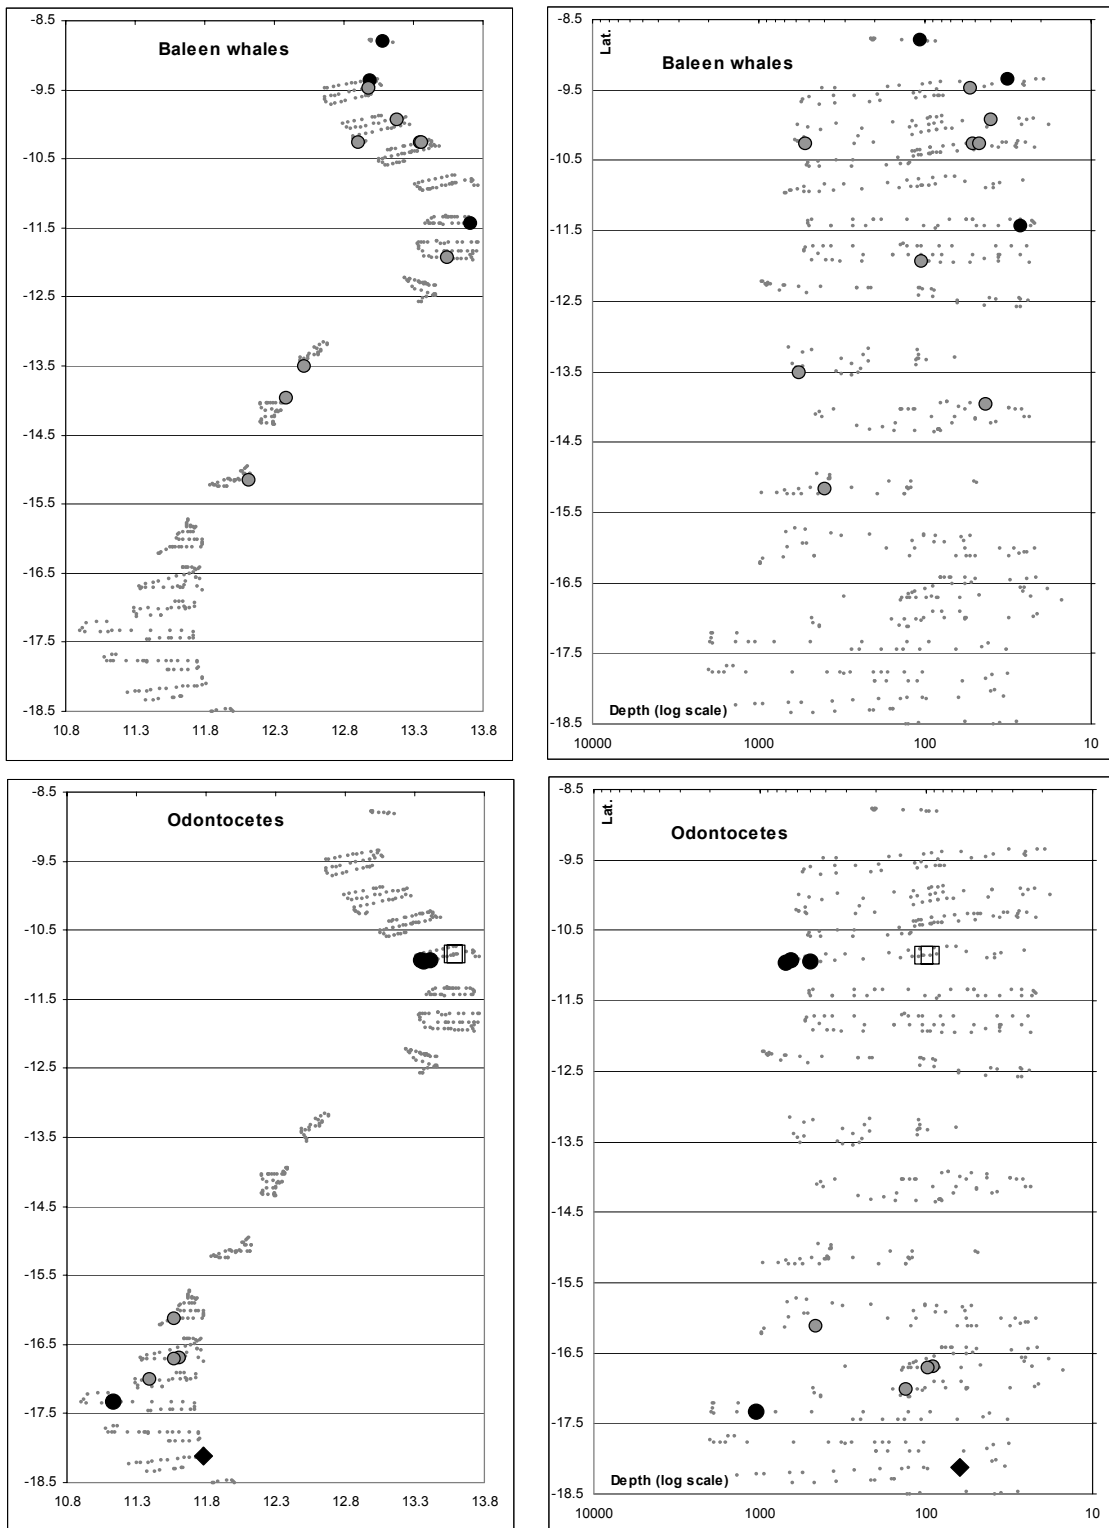 Baleen whales
-8.5
-9.5
-10.5
-11.5
-12.5
-13.5
-14.5
-15.5
-16.5
-17.5
-18.5
10.8 11.3 11.8 12.3 12.8 13.3 13.8
Lat.
Baleen whales
-8.5
-9.5
-10.5
-11.5
-12.5
-13.5
-14.5
-15.5
-16.5
-17.5
-18.5
Depth (log scale)
10000 1000 100 10
Odontocetes
-8.5
-9.5
-10.5
-11.5
-12.5
-13.5
-14.5
-15.5
-16.5
-17.5
-18.5
10.8 11.3 11.8 12.3 12.8 13.3 13.8
Lat.
Odontocetes
-8.5
-9.5
-10.5
-11.5
-12.5
-13.5
-14.5
-15.5
-16.5
-17.5
-18.5
Depth (log scale)
10000 1000 100 10